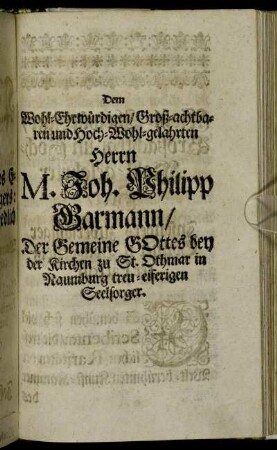 Dem
Wohl-Ehrwürdigen/ Groß-achtba-
ren und Hoch-Wohl-gelahrten
Herrn
M. Joh. Philipp
Garmann/
Der Gemeine GOttes bey
der Kirchen zu St. Othmar in
Naumburg treu-eiferigen
Seelsorger.